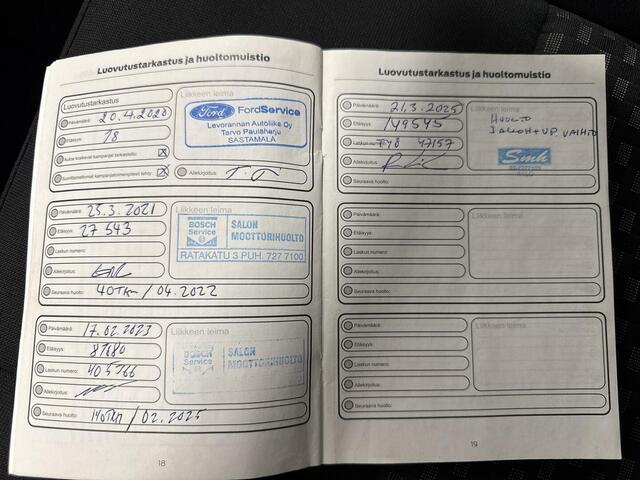 Luovutustarkastus ja huoltomuistio
Luovutustarkastus
Liikkeen leima
Päivämäärä: 20.4.2020
Etäisyys: 18
Autoa koskevat kampanjat tarkastettu:
Suorittamattomat kampanjatoimenpiteet tehty:
Allekirjoitus:
Ford FordService
Levorannan Autoliike Oy
Tarvo Pauläharju
SASTAMALA
Päivämäärä: 25.3.2021
Etäisyys: 27 543
Laskun numero:
Allekirjoitus:
Seuraava huolto: 40TKM / 04.2022
Liikkeen leima
BOSCH
Service
SALON
MOOTTORIHUOLTO
RATAKATU 3 PUH. 727 7100
Päivämäärä: 17.02.2023
Etäisyys: 87680
Laskun numero: 405766
Allekirjoitus:
Seuraava huolto: 140TKM / 02.2025
Liikkeen leima
BOSCH
Service
SALON
MOOTTORIHUOLTO
18
Luovutustarkastus ja huoltomuistio
Päivämäärä: 21.3.2025
Etäisyys: 149545
Laskun numero: 47157
Allekirjoitus:
Seuraava huolto:
Liikkeen leima
HUOLTO
VAIHTO
Päivämäärä:
Etäisyys:
Laskun numero:
Allekirjoitus:
Seuraava huolto:
Liikkeen leima
Päivämäärä:
Etäisyys:
Laskun numero:
Allekirjoitus:
Seuraava huolto:
Liikkeen leima
19